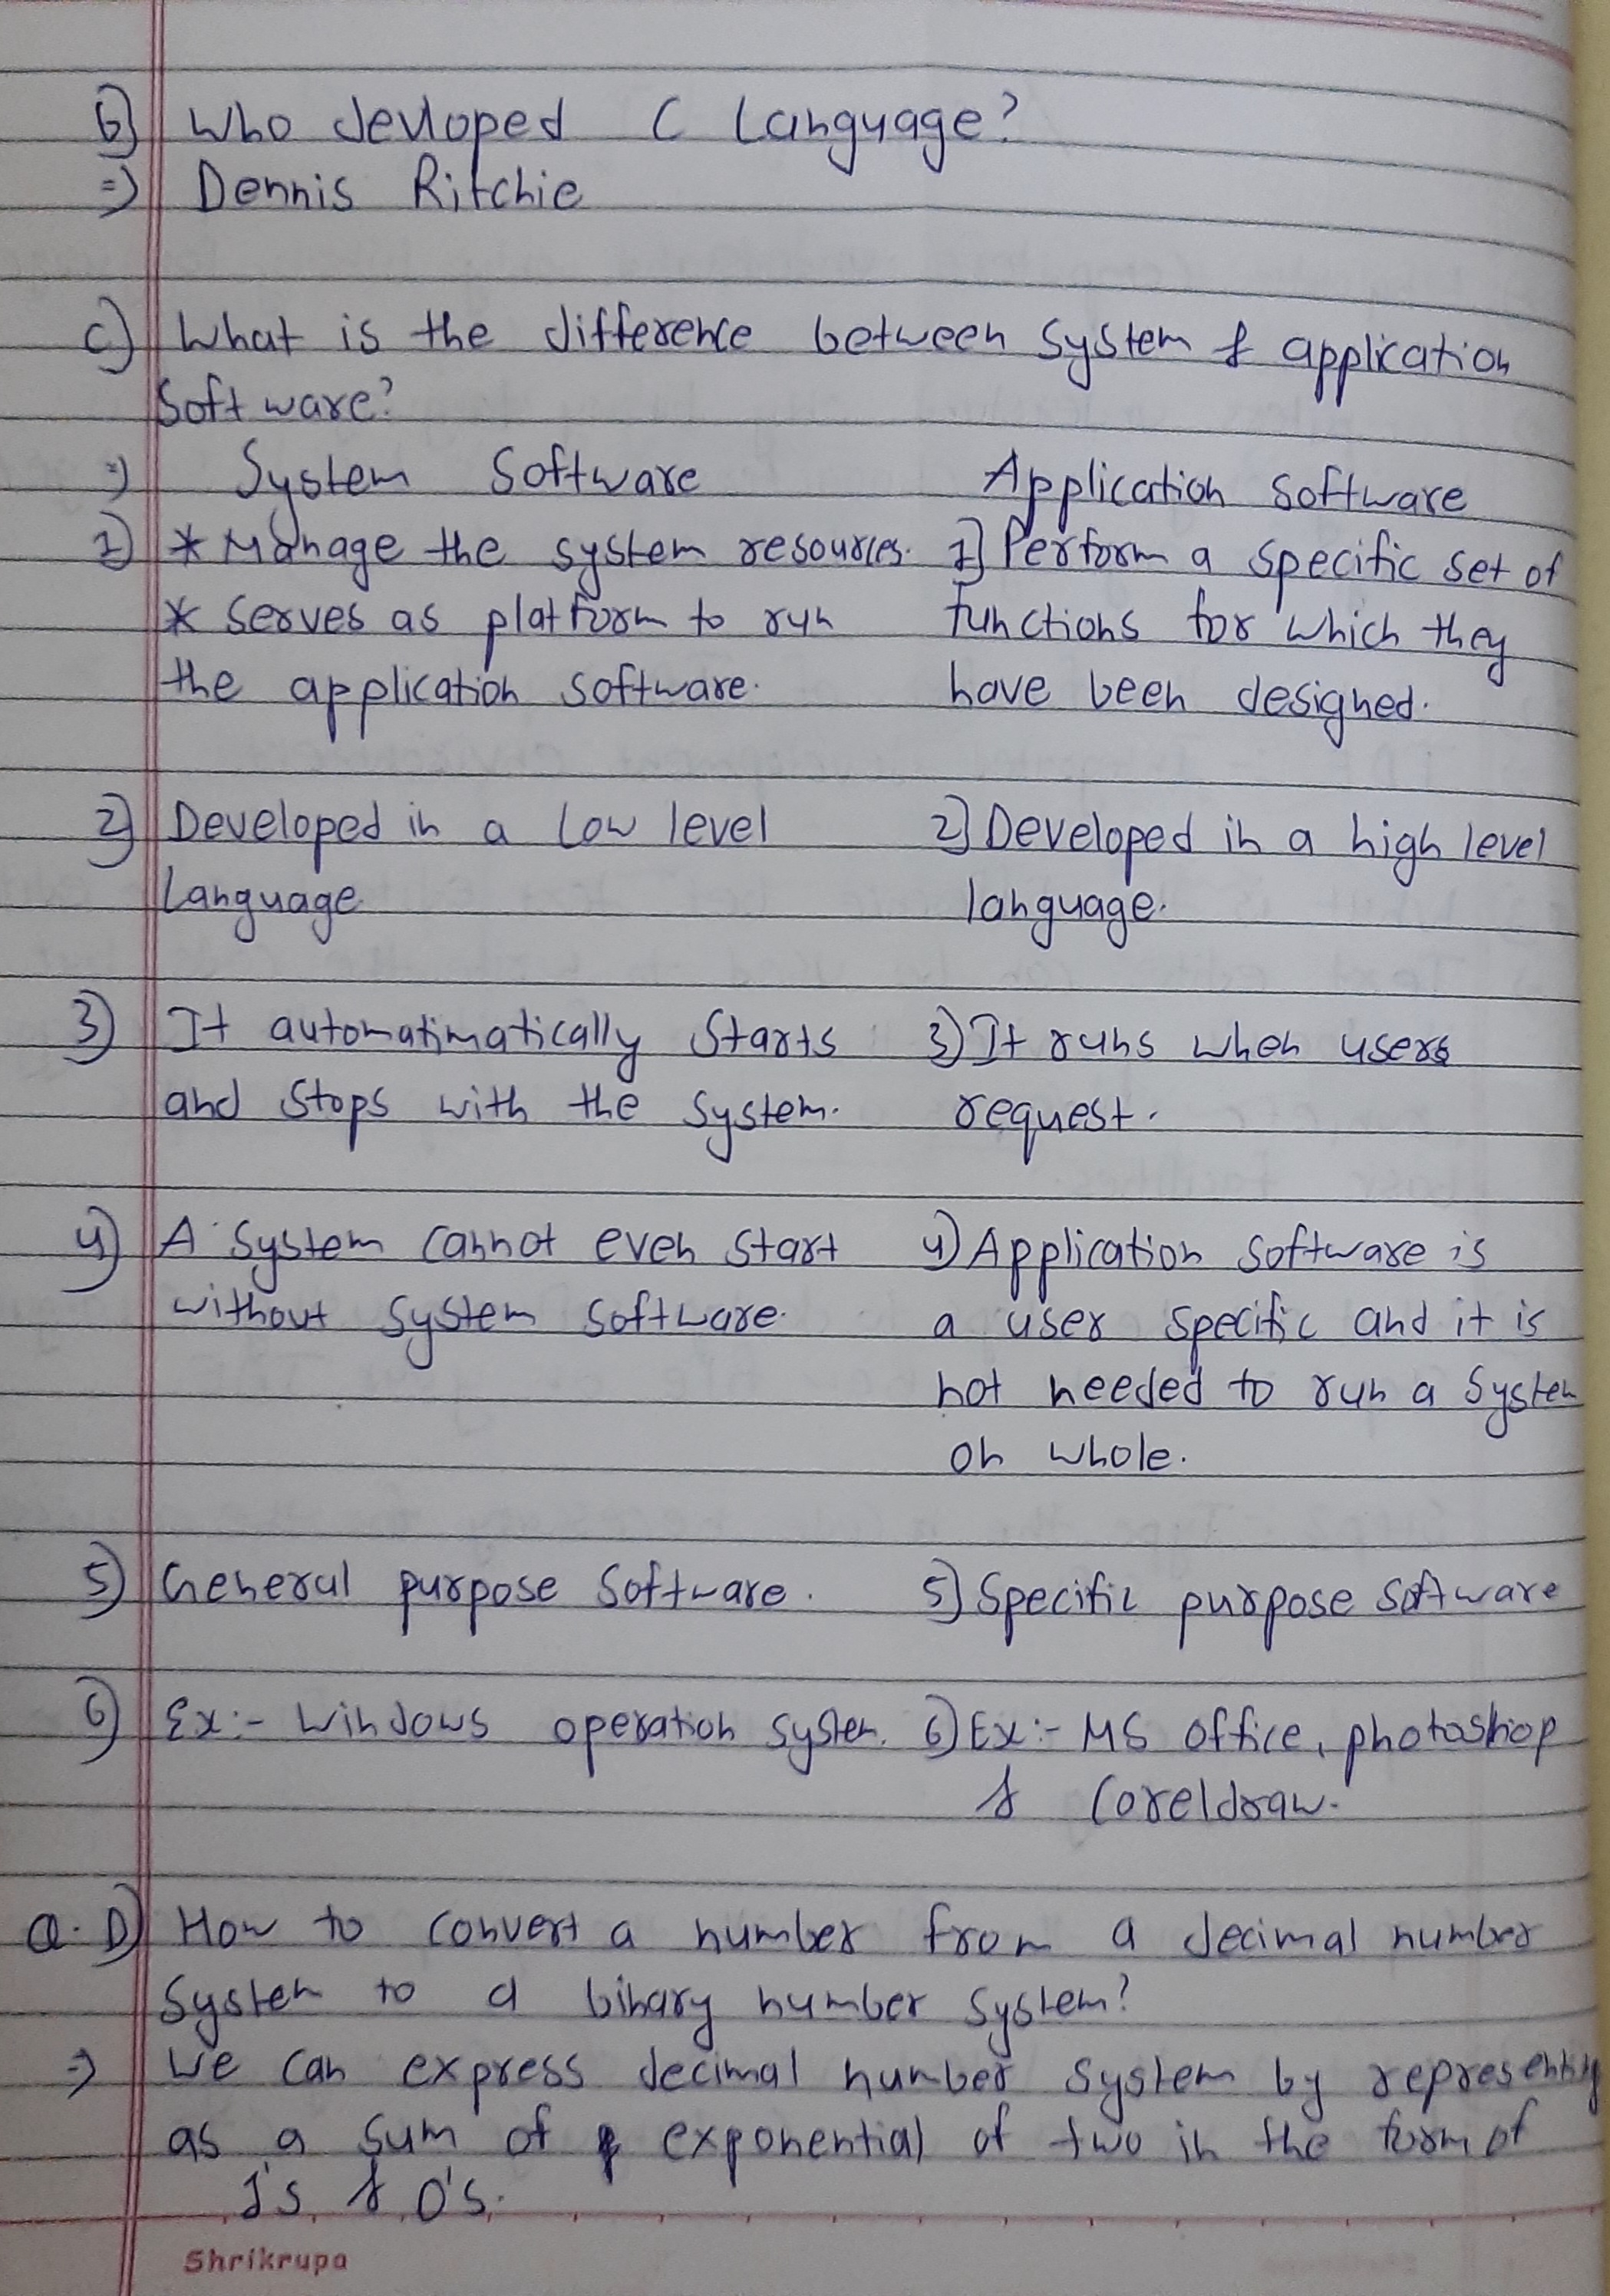 B) Who devloped C Language?
=) Dennis Ritchie
C) What is the difference between system & application
software?
=) System Software Application software
1) * Manage the system resources. 1) Perform a specific set of
* serves as platform to run functions for which they
the application software. have been designed.
2) Developed in a low level 2) Developed in a high level
language. language.
3) It automatimatically starts 3) It runs when users
and stops with the system. request.
4) A system cannot even start 4) Application software is
without system software. a user specific and it is
not needed to run a system
on whole.
5) General purpose software. 5) Specific purpose software
6) Ex:- Windows operation system. 6) Ex:- MS office, photoshop
& Coreldraw.
Q. D) How to convert a number from a decimal number
system to a binary number system?
=) We can express decimal number system by representing
as a sum of exponential of two in the form of
1's & 0's.
Shrikrupa